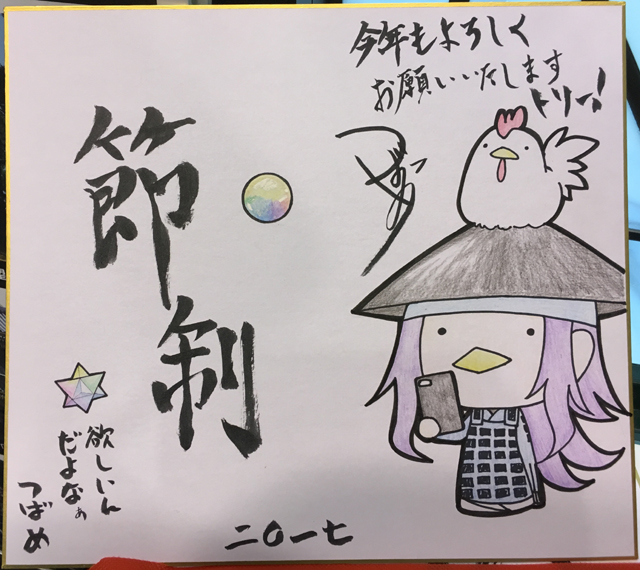 今年もよろしく
お願いいたします
トリィ!
節制
欲しいん
だよなぁ
つばめ
二〇一七